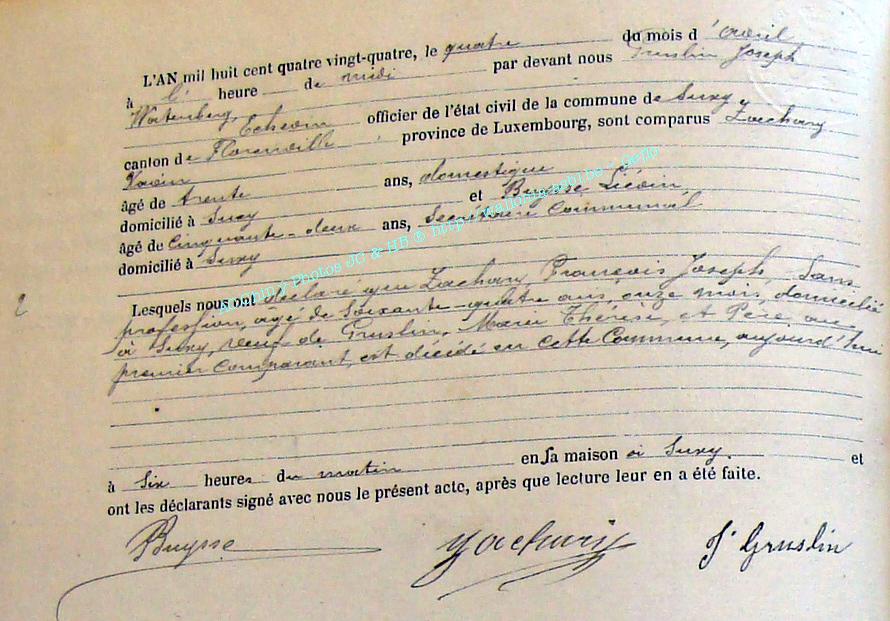 L'AN mil huit cent quatre vingt-quatre, le quatre du mois d'avril
à l' heure de midi par devant nous Gruslin Joseph
Echevin officier de l'état civil de la commune de Suxy
canton de Florenville, province de Luxembourg, sont comparus Zachary
âgé de trente ans, domestique
domicilié à Suxy et Buysse Liévin
âgé de Cinquante-deux ans, Secrétaire Communal
domicilié à Suxy
Lesquels nous ont déclaré que Zachary, François Joseph, Sans
profession, âgé de Soixante-quatre ans, onze mois, domicilié
à Suxy, veuf de Gruslin, Marie Thérèse, et Père au
premier Comparant, est décédé en cette Commune, aujourd'hui
2
à Six heures du matin en sa maison à Suxy. et
ont les déclarants signé avec nous le présent acte, après que lecture leur en a été faite.
Buysse Zachary J. Gruslin